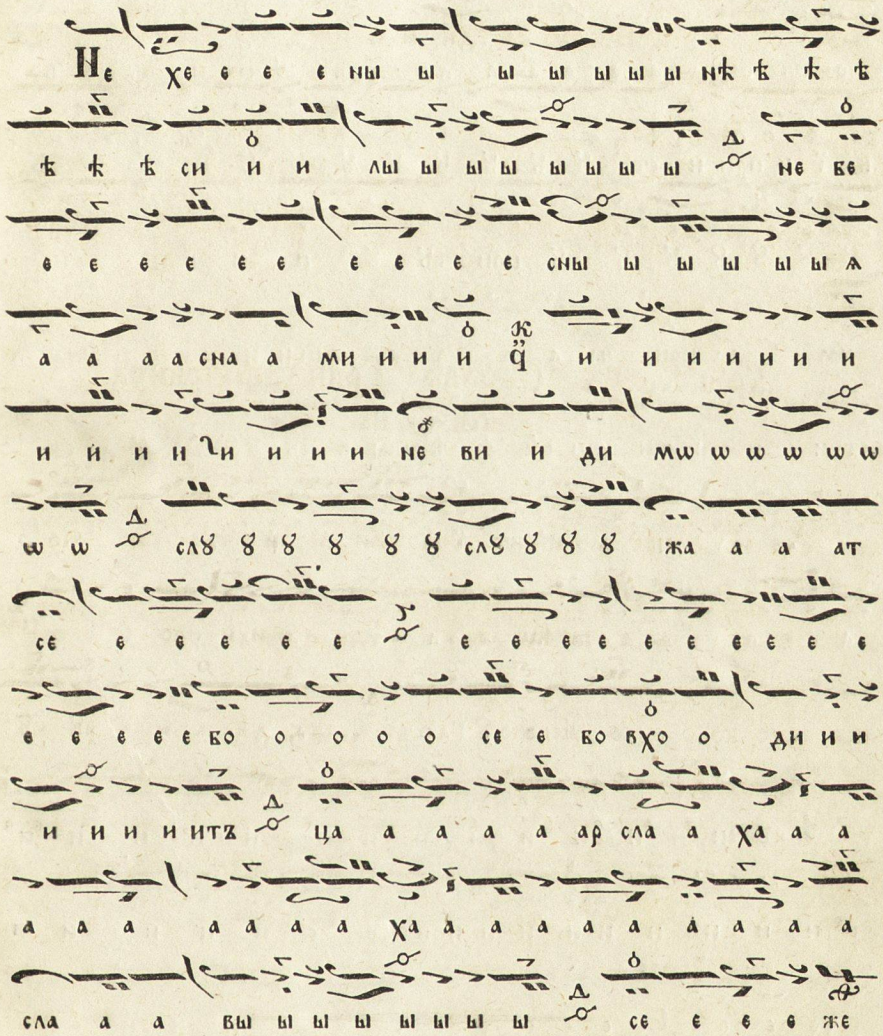 Не хе е е е ны ы ы ы ы ы ы нѣ ѣ ѣ ѣ
ѣ ѣ ѣ си и и лы ы ы ы ы ы ы ы Д не бе
е е е е е е е е е е е сны ы ы ы ы ы ѧ
а а а а сна а ми и и и К q и и и и и и и
и и и и и и и и не ви и ди мѡ ѡ ѡ ѡ ѡ ѡ
ѡ ѡ Д слꙋ ꙋ ꙋ ꙋ ꙋ ꙋ слꙋ ꙋ ꙋ ꙋ жа а а ат
се е е е е е е е е е е е е е е е
е е е е е бо о о о о се е бо вхо о ди и и
и и и и итъ Д ца а а а а ар сла а ха а а
а а а а а а а ха а а а а а а а а а
сла а а вы ы ы ы ы ы ы ы Д се е е е же